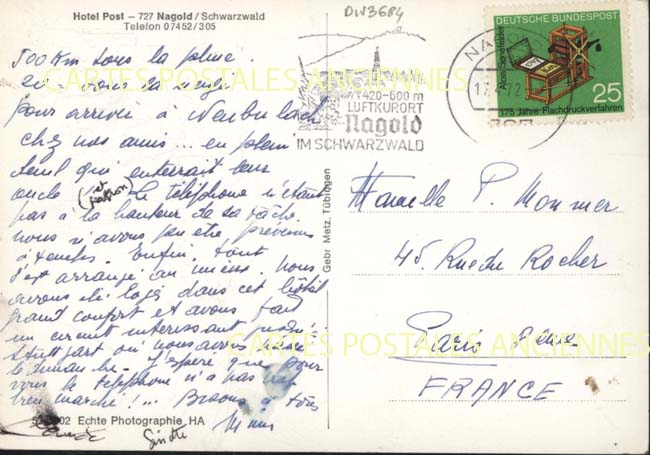 Hotel Post — 727 Nagold / Schwarzwald
Telefon 07452 / 305
DW3684
500 Km sous la pluie
pour arriver à Neubulach
chez nos amis... en plein
deuil qui enterrait leur
oncle (et patron) Le téléphone n'étant
pas à la hauteur de sa tâche
nous n'avons pu être prévenus
à temps. Enfin, tout
s'est arrangé au mieux. Nous
avons été logés dans cet hôtel
grand confort et avons fait
un circuit intéressant
Stuttgart où nous avons
le dimanche. J'espère que pour
vous le téléphone n'a pas
bien marché !... Bisous à tous
Mimi
902 Echte Photographie HA
Gebr. Metz, Tübingen
420-600 m
LUFTKURORT
Nagold
IM SCHWARZWALD
DEUTSCHE BUNDESPOST
Alois Senefelder
25
175 Jahre Flachdruckverfahren
Marcelle P. Mommer
45 Rue du Rocher
Paris 8ème
FRANCE
CARTES POSTALES ANCIENNES
CARTES POSTALES ANCIENNES